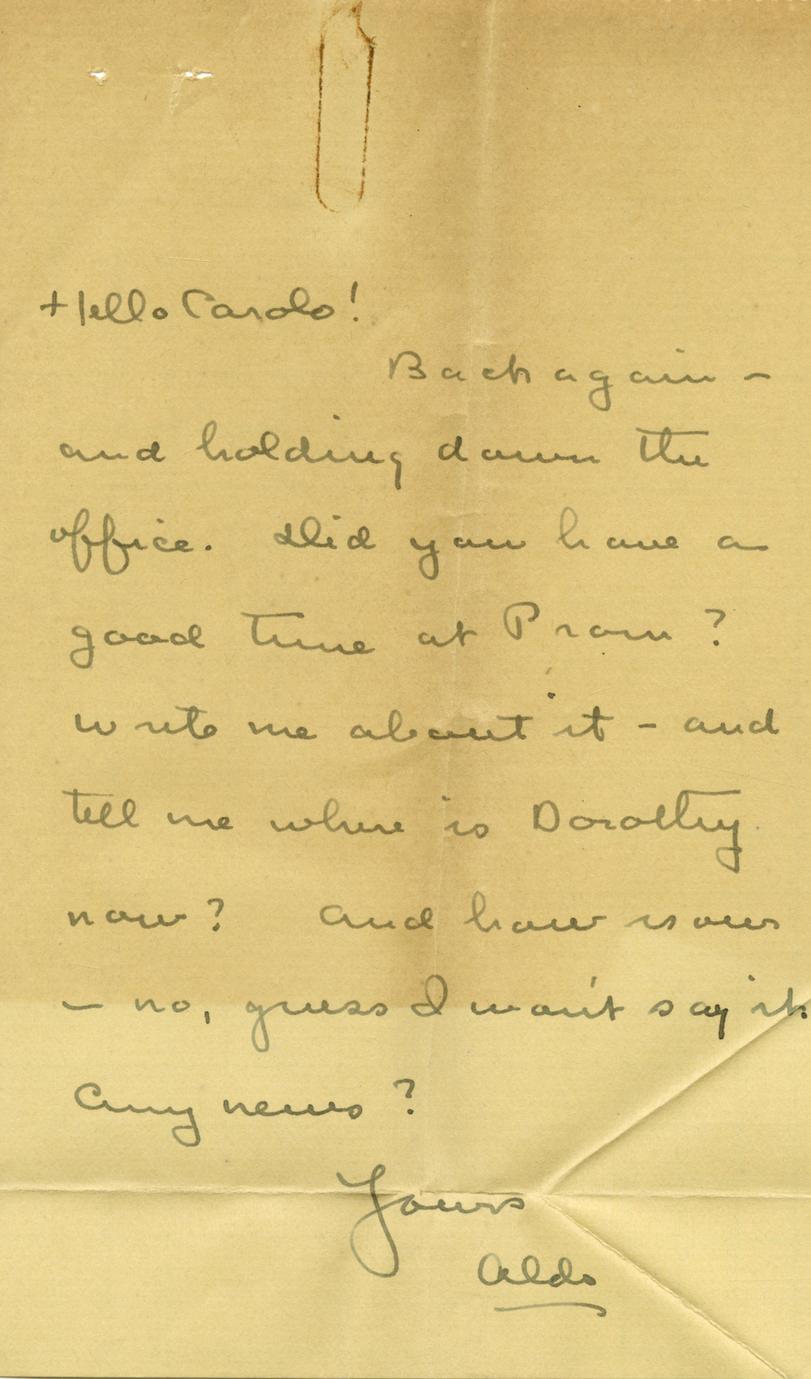 Hello Carolo!
Back again -
and holding down the
office. Did you have a
good time at Prom?
write me about it - and
tell me where is Dorothy
now? And how is our
- no, guess I won't say it.
Any news?
Yours
Aldo